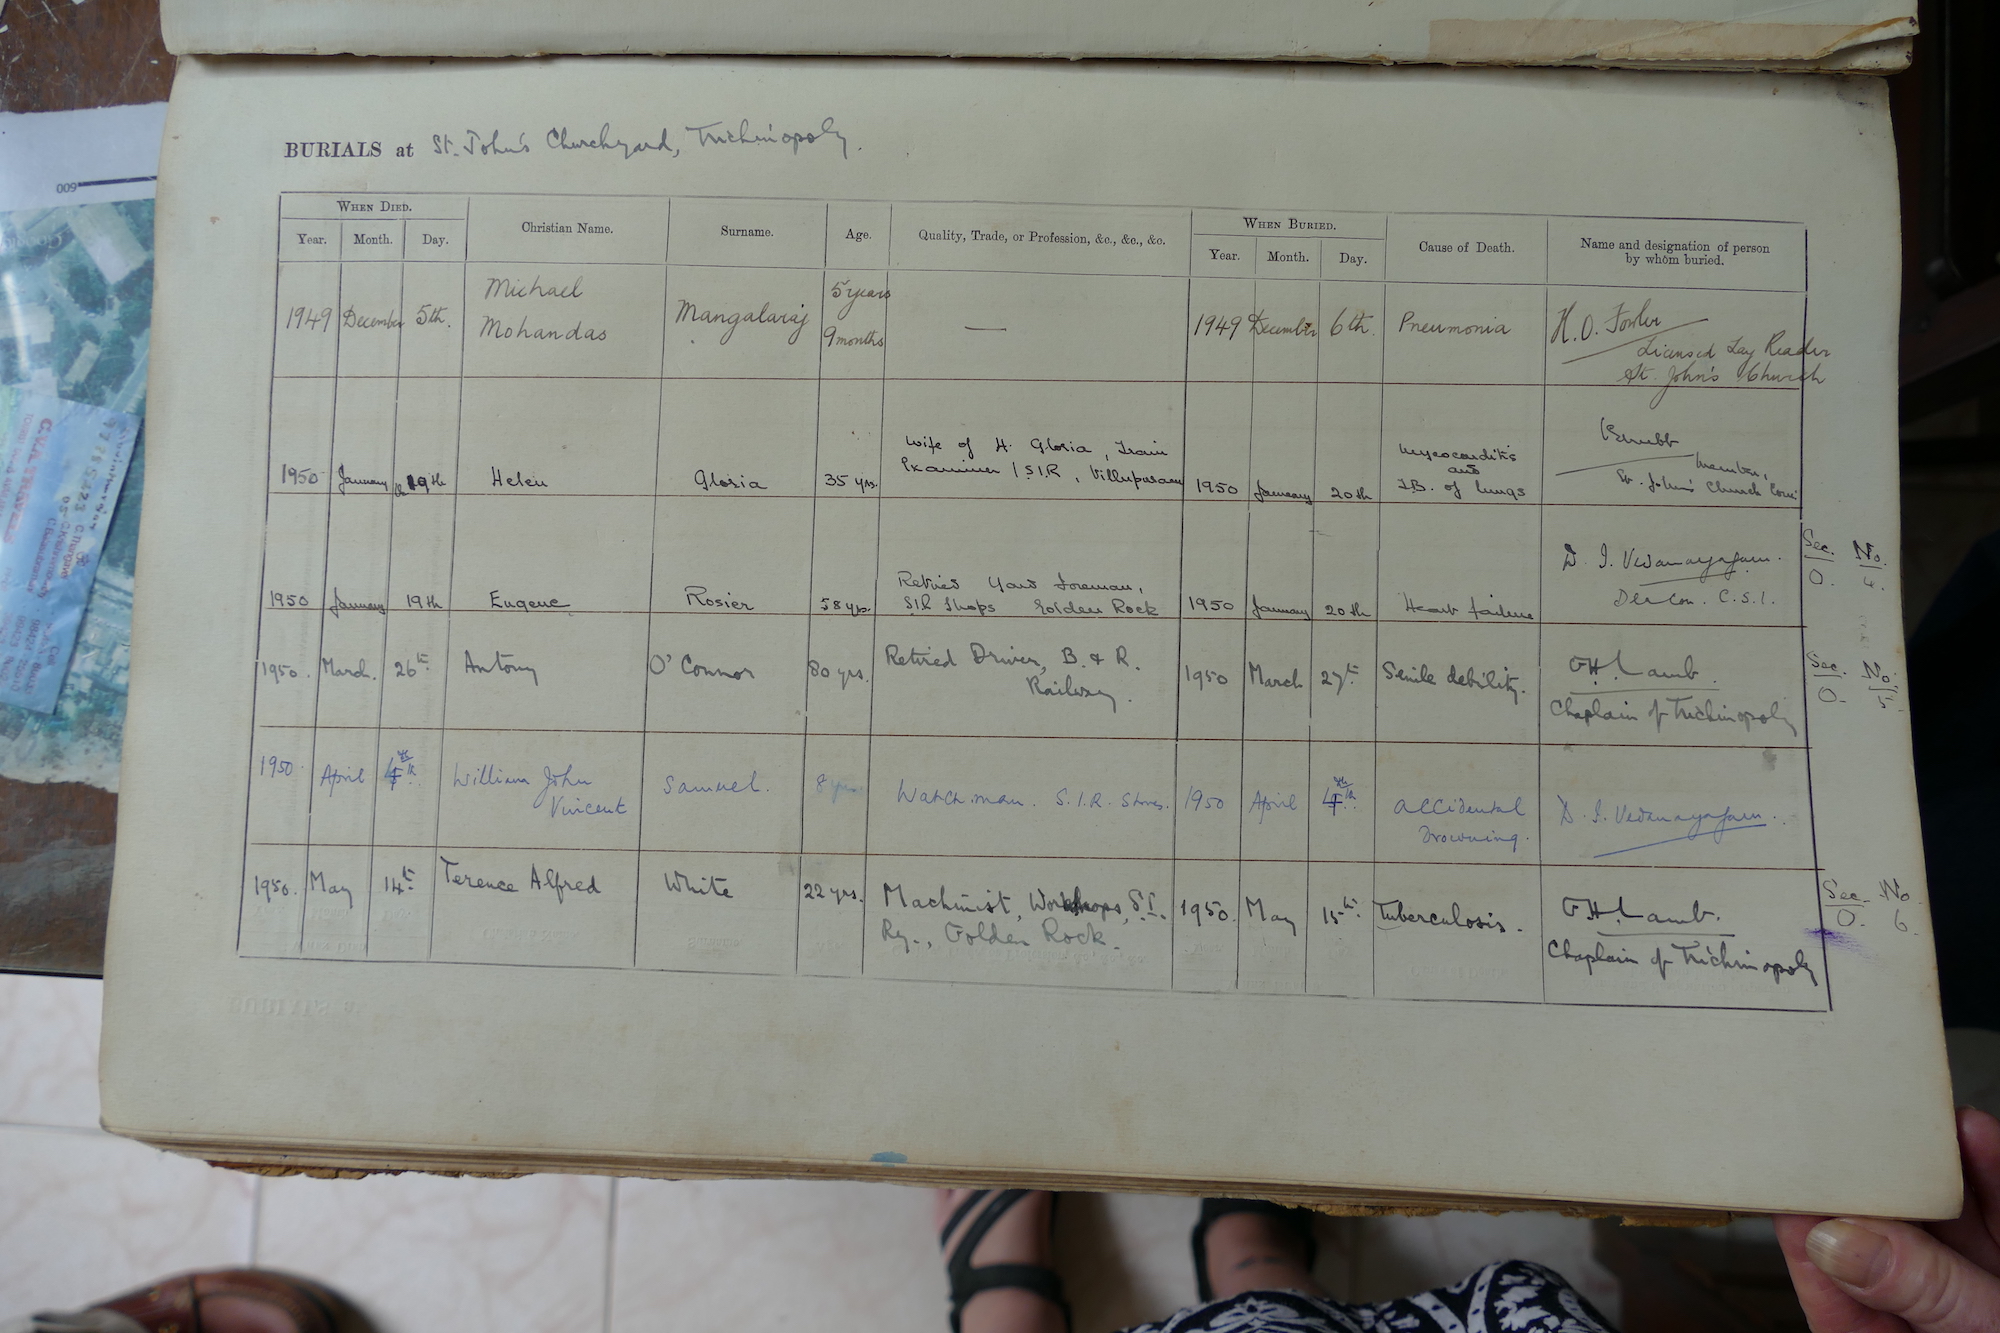 BURIALS at St. John's Churchyard, Trichinopoly.
WHEN DIED.
Year. Month. Day.
Christian Name.
Surname.
Age.
Quality, Trade, or Profession, &c., &c., &c.
WHEN BURIED.
Year. Month. Day.
Cause of Death.
Name and designation of person
by whom buried.
1949 December 5th.
Michael
Mohandas
Mangalaraj
5 years
9 months
—
1949 December 6th.
Pneumonia
H. O. Fowler
Licensed Lay Reader
St. John's Church
1950 January 19th
Helen
Gloria
35 yrs.
Wife of H. Gloria, Train
Examiner, S.I.R, Villupuram
1950 January 20th
Myocarditis
and
T.B. of lungs
Member,
St. John's Church
1950 January 19th
Eugene
Rosier
58 yrs.
Retired Yard Foreman,
SIR Shops Golden Rock
1950 January 20th
Heart failure
D. I. Vedanayagam.
Deacon. C.S.I.
Sec. No.
O. 4.
1950. March. 26th
Antony
O'Connor
80 yrs.
Retired Driver, B. & R.
Railway.
1950 March 27th
Senile debility.
G.H. Lamb.
Chaplain of Trichinopoly
Sec. No.
O. 5
1950. April
William John
Vincent
Samuel.
8
Watchman. S.I.R. Stores.
1950 April
Accidental
Drowning.
D. I. Vedanayagam.
1950. May 14th
Terence Alfred
White
22 yrs.
Machinist, Workshops, S.I.
Ry., Golden Rock.
1950. May 15th.
Tuberculosis.
G.H. Lamb.
Chaplain of Trichinopoly
Sec. No.
O. 6.
009